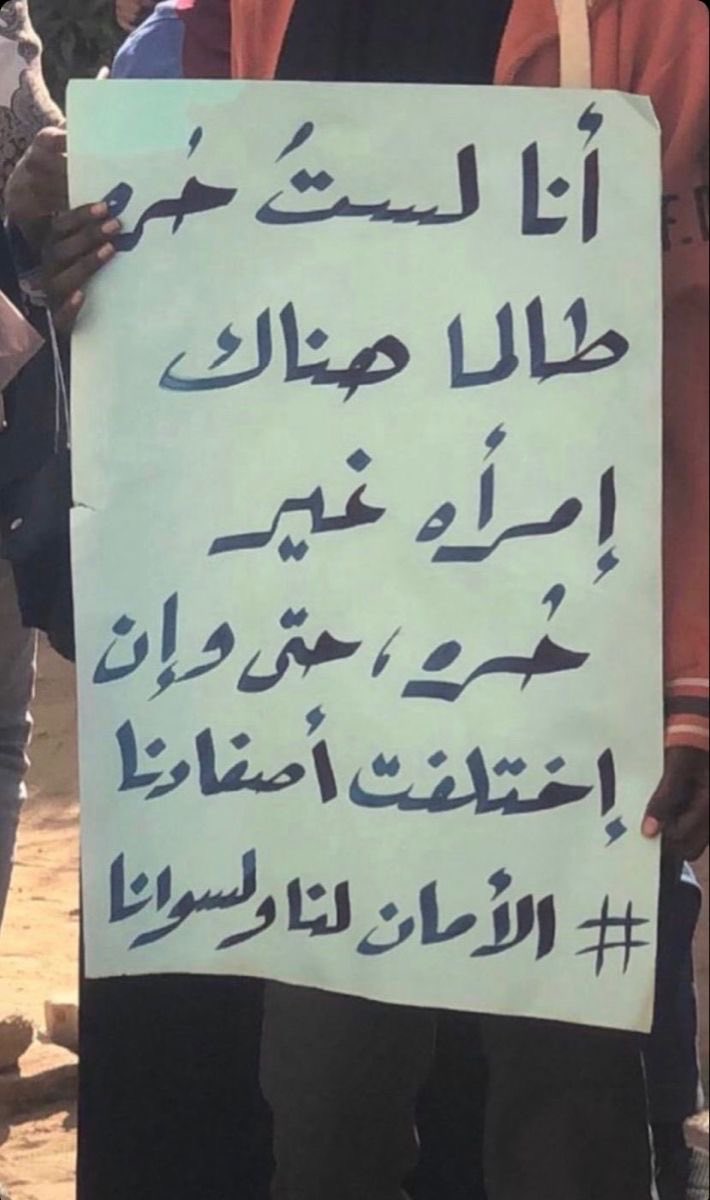 أنا لستُ حُره
طالما هناك
إمرأه غير
حُره، حتّى وإن
إختلفت أصفادنا
# الأمان لنا ولسوانا